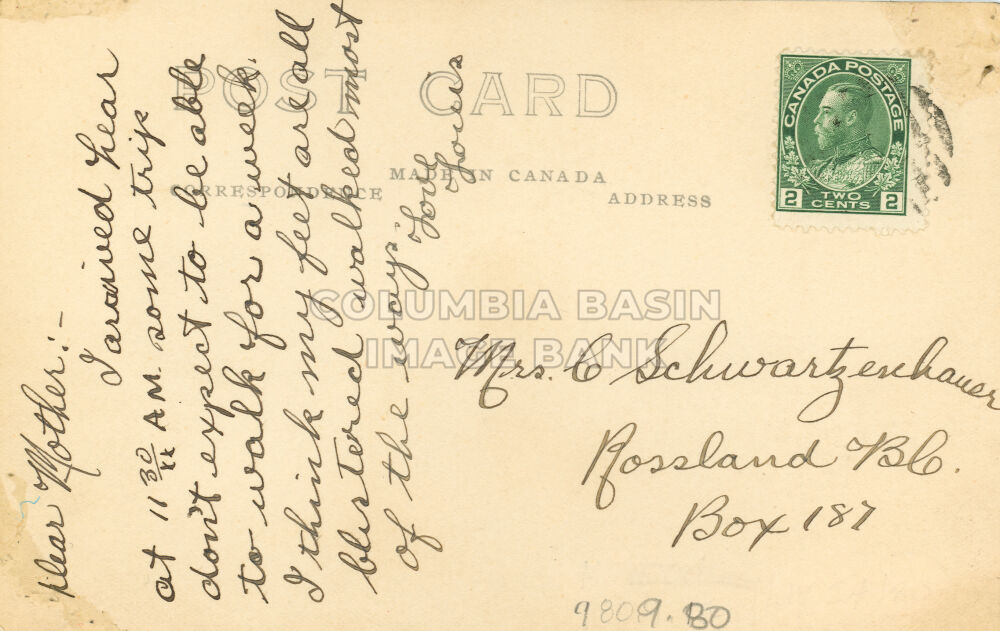 POST CARD
MADE IN CANADA
CORRESPONDENCE
ADDRESS
CANADA POSTAGE
2 TWO CENTS 2
Dear Mother:-
I arrived hear
at 11 30 A.M. some trip
don't expect to be able
to walk for a week.
I think my feet are all
blistered walked most
of the way.
Love
Louis
Mrs. C Schwartzenhauer
Rossland B.C.
Box 187
COLUMBIA BASIN
IMAGE BANK
9809.80